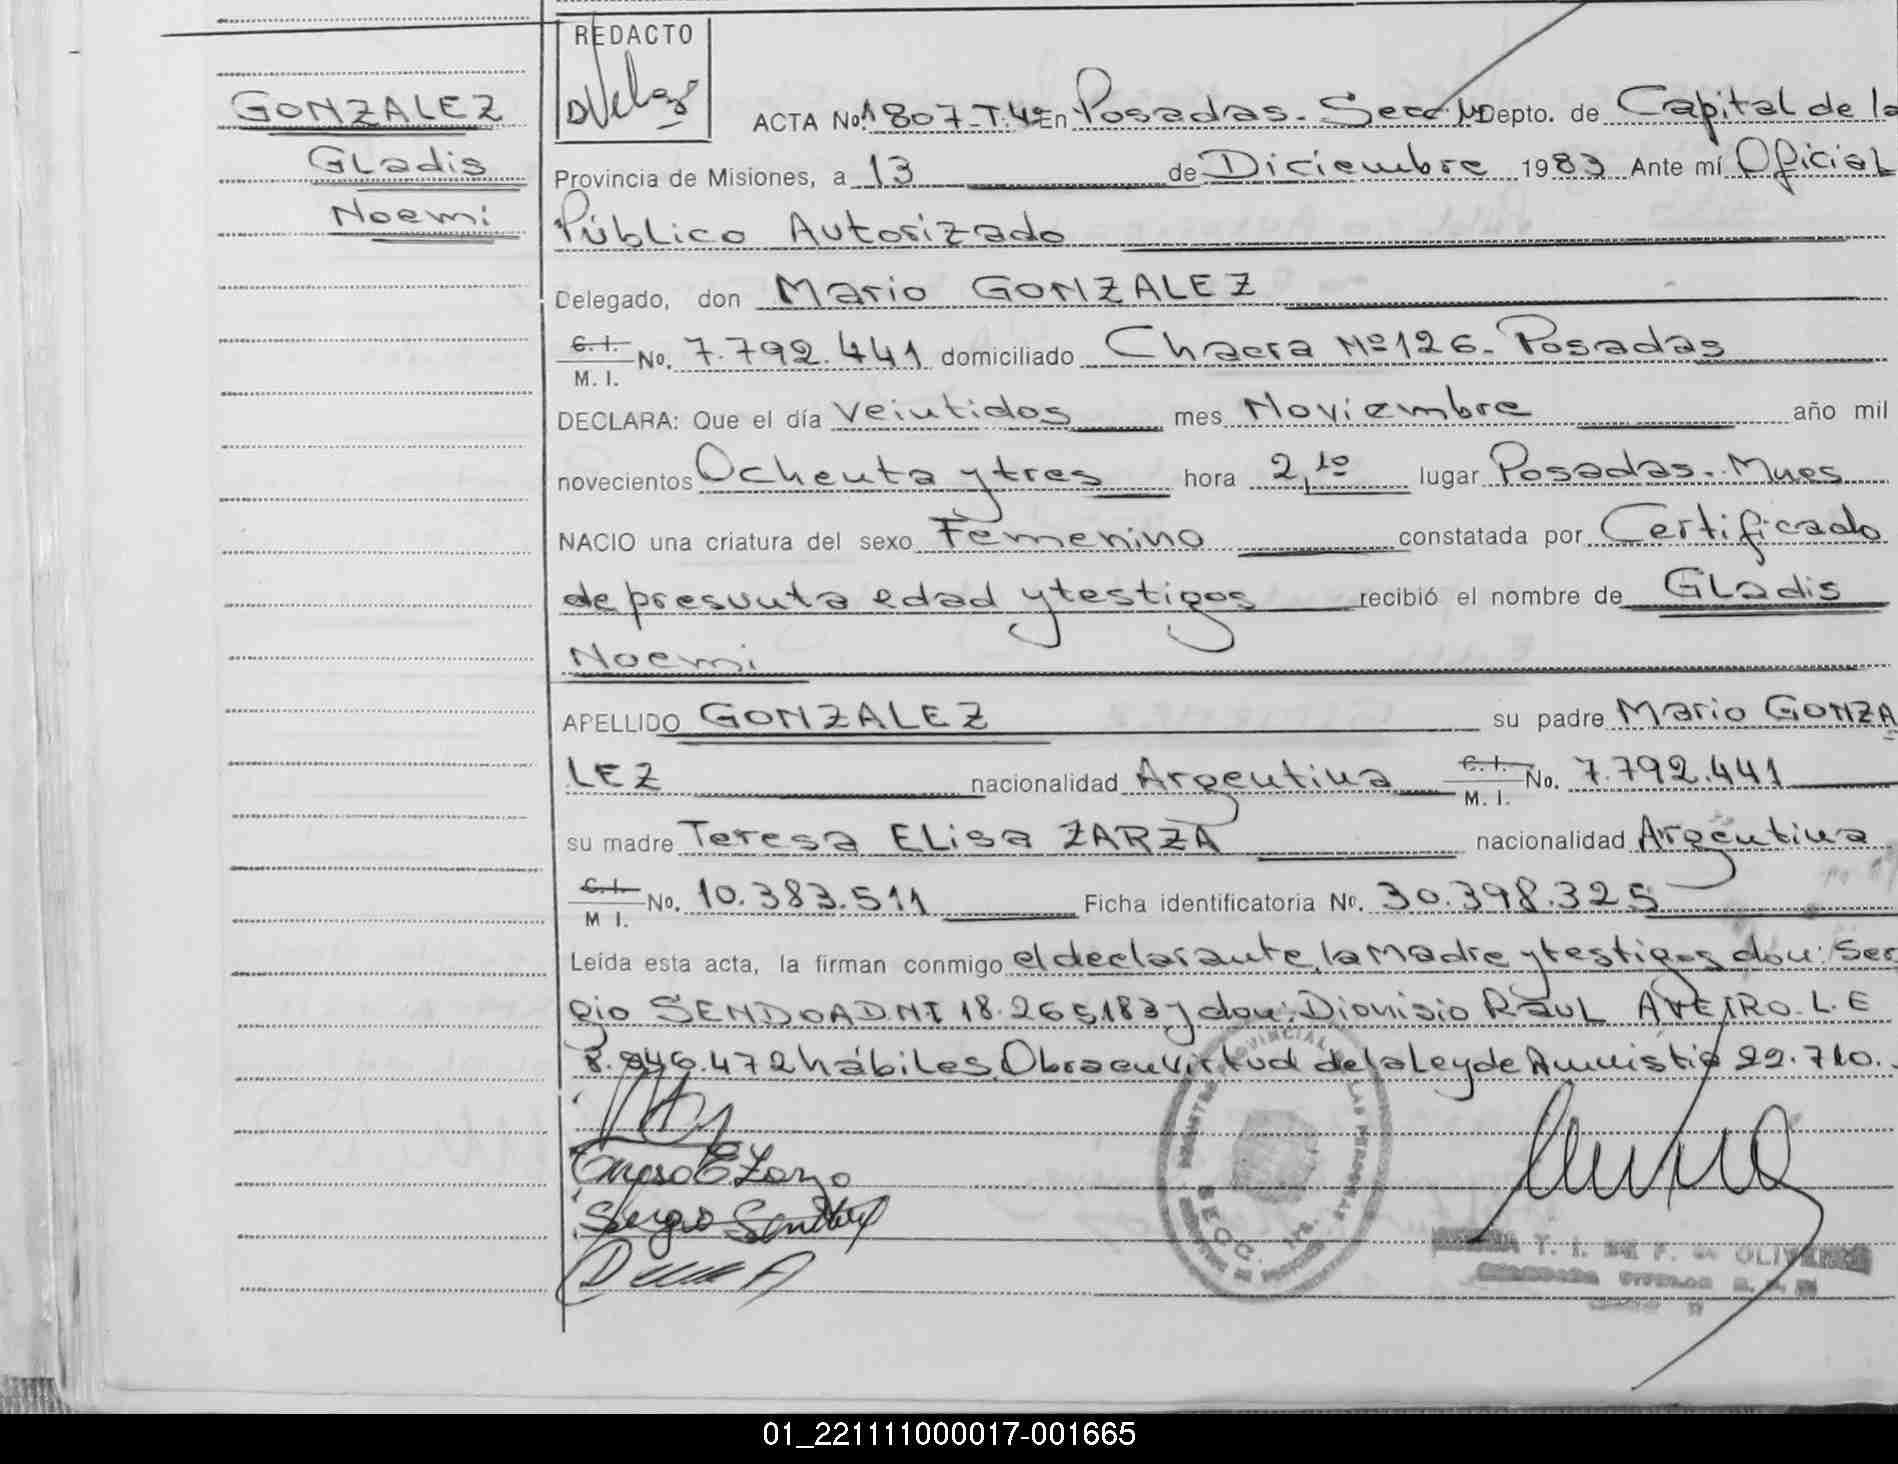 REDACTO
GONZALEZ
Gladis
Noemi
ACTA No. 1807-T.4º En Posadas. Secc Depto. de Capital de la
Provincia de Misiones, a 13 de Diciembre 1983 Ante mí Oficial
Público Autorizado
Delegado, don Mario GONZALEZ
C.I. M. I. No. 7.792.441 domiciliado Chacra Nº 126. Posadas
DECLARA: Que el día veintidos mes Noviembre año mil
novecientos Ochenta y tres hora 2,10 lugar Posadas. Mnes
NACIO una criatura del sexo Femenino constatada por Certificado
de presunta edad y testigos recibió el nombre de Gladis
Noemi
APELLIDO GONZALEZ su padre Mario GONZA
LEZ nacionalidad Argentina C. I. M. I. No. 7.792.441
su madre Teresa Elisa ZARZA nacionalidad Argentina
C. I. M I. No. 10.383.511 Ficha identificatoria No. 30.398.325
Leída esta acta, la firman conmigo el declarante, la madre y testigos don: Ser
gio SENDOA DNI 18.265183 y don: Dionisio Raul AVEIRO. L.E
8. .472 hábiles, Obra en virtud de la ley de Amnistia 22.710.
Teresa E Zarza
Sergio
SECC.
T. I. DE F. OLIVEIRA
01_221111000017-001665